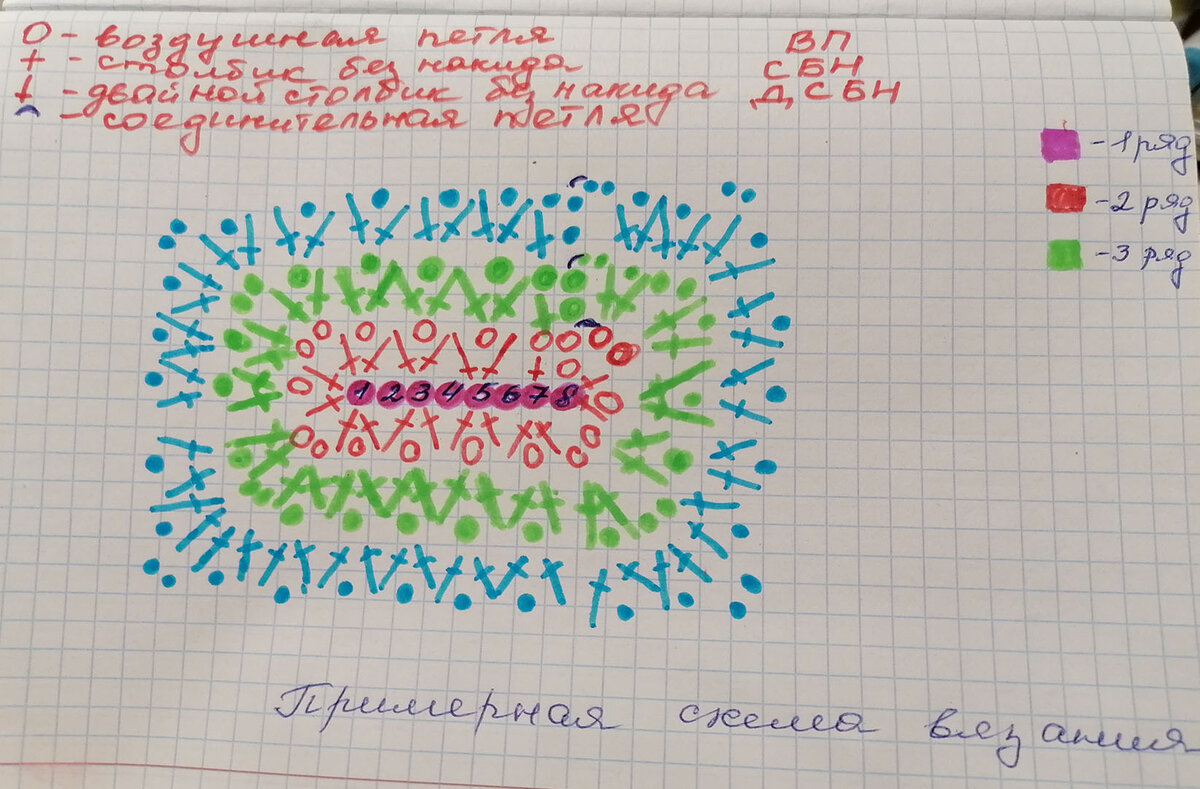 О - воздушная петля ВП
+ - столбик без накида СБН
ɫ - двайной столбик без накида ДСБН
⌒ - соединительная петля
- 1 ряд
- 2 ряд
- 3 ряд
1 2 3 4 5 6 7 8
Примерная схема вязания